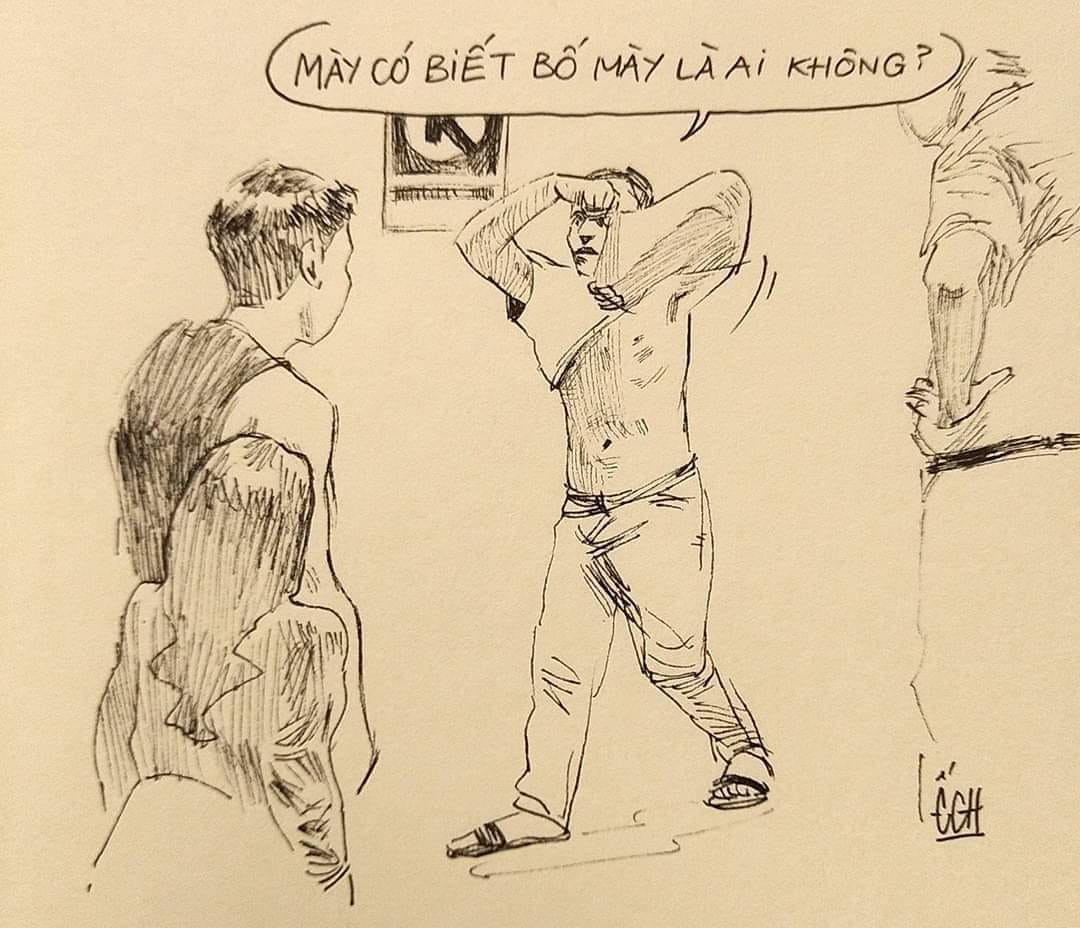 MÀY CÓ BIẾT BỐ MÀY LÀ AI KHÔNG?